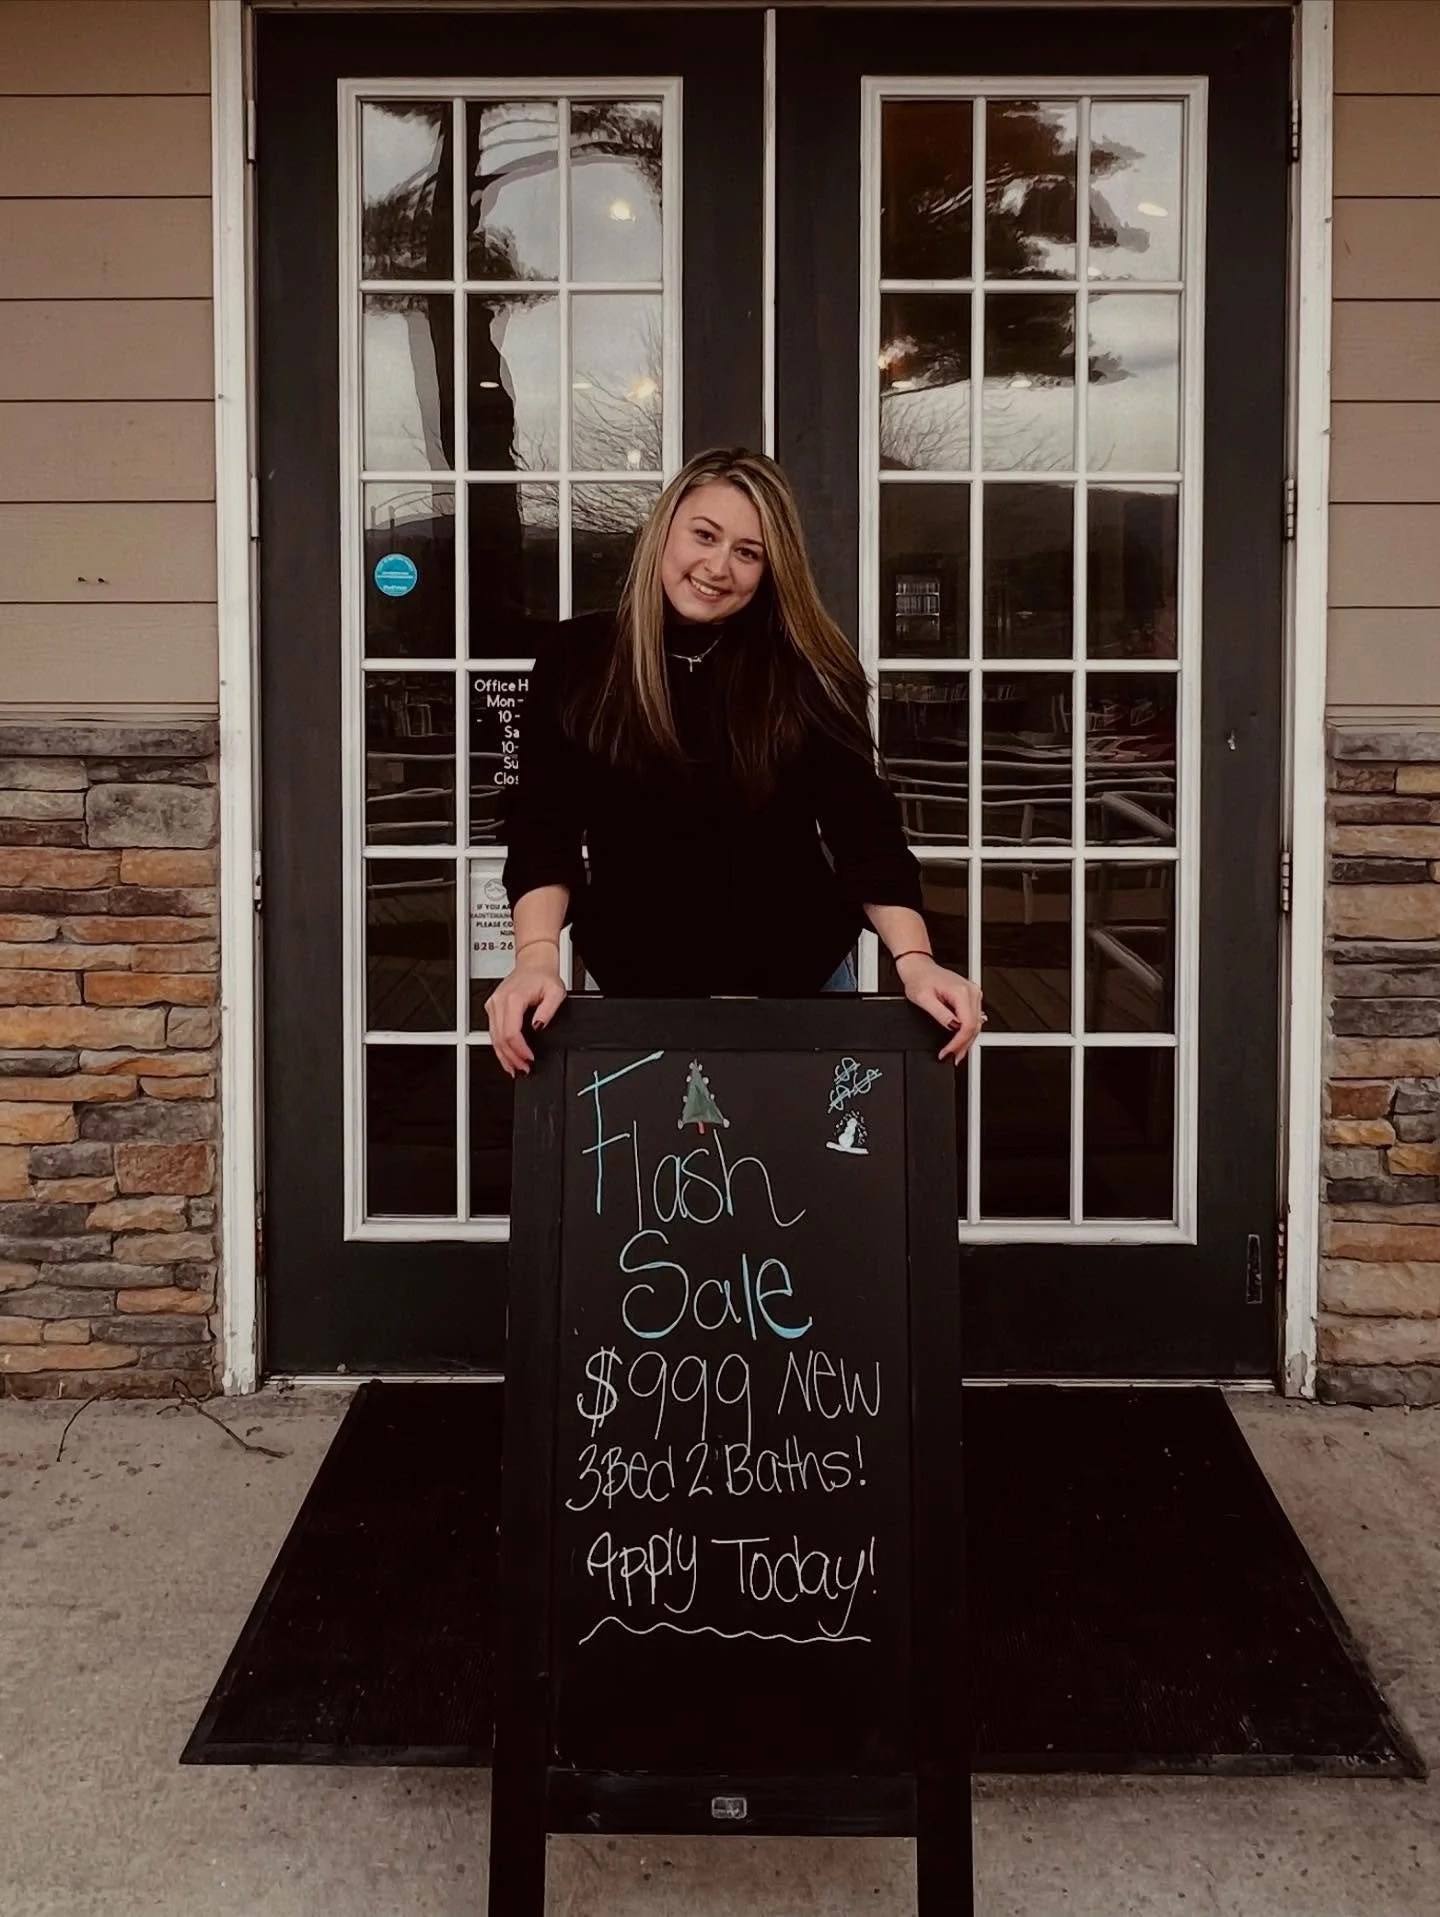 Office H
Mon -
10 -
Sa
10-
Su
Clos
IF YOU AR
MAINTENANC
PLEASE CO
NUM
828-26
Flash
Sale
$999 New
3Bed 2 Baths!
Apply Today!